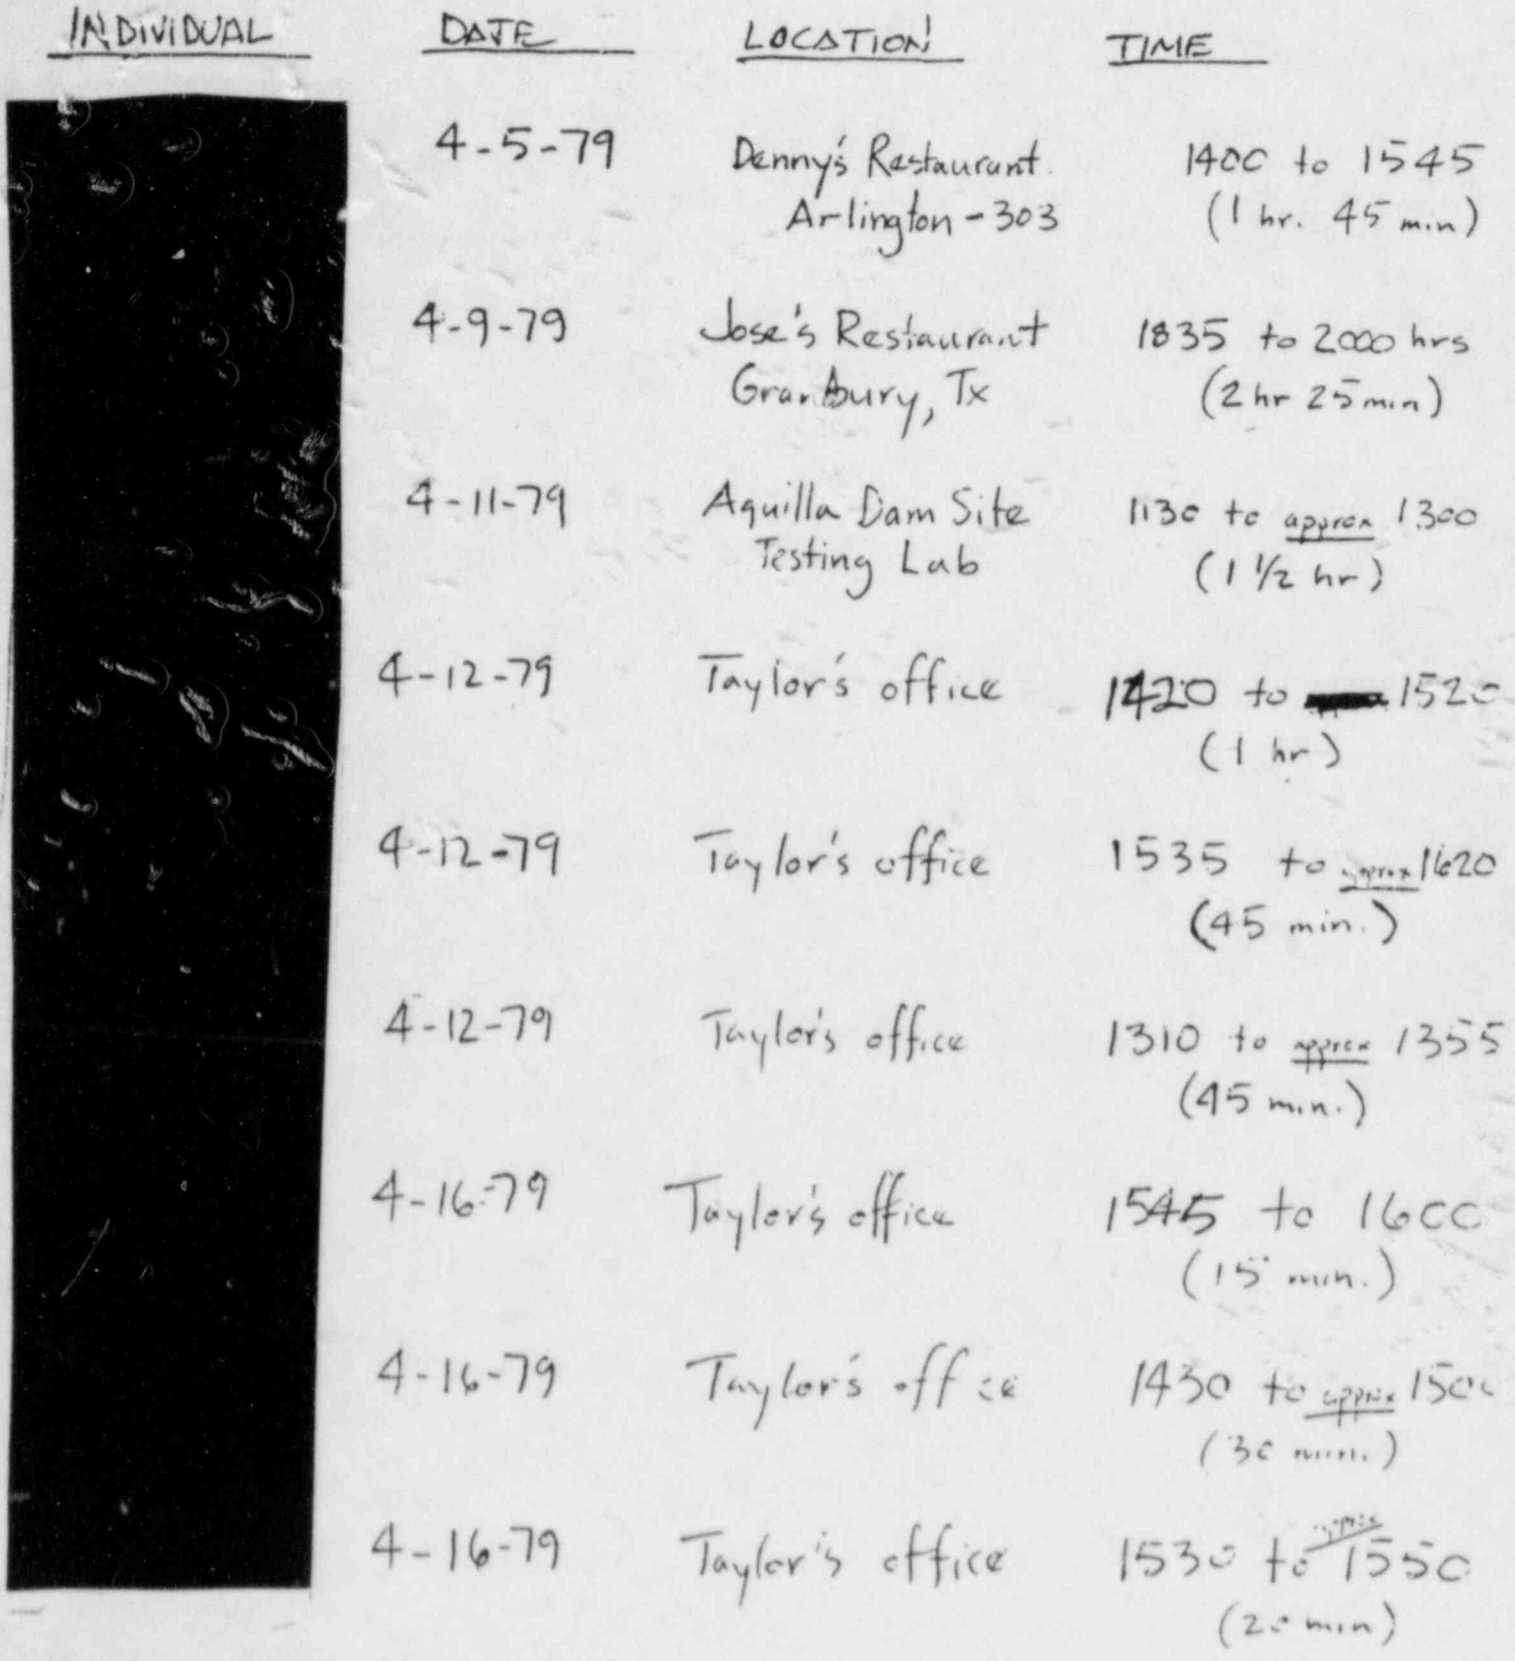 INDIVIDUAL DATE LOCATION TIME
4-5-79 Denny's Restaurant 1400 to 1545
Arlington - 303 (1 hr. 45 min)
4-9-79 Jose's Restaurant 1835 to 2000 hrs
Granbury, Tx (2 hr 25 min)
4-11-79 Aquilla Dam Site 1130 to approx 1300
Testing Lab (1 1/2 hr)
4-12-79 Taylor's office 1420 to 1520
(1 hr)
4-12-79 Taylor's office 1535 to approx 1620
(45 min.)
4-12-79 Taylor's office 1310 to approx 1355
(45 min.)
4-16-79 Taylor's office 1545 to 1600
(15 min.)
4-16-79 Taylor's office 1430 to approx 1500
(30 min.)
4-16-79 Taylor's office 1530 to approx 1550
(20 min)